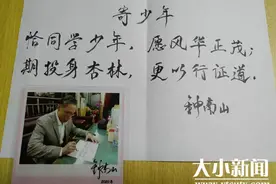 寄少年
恰同学少年，愿风华正茂；
期投身杏林，更以行证道。
钟南山
钟南山
大小新闻